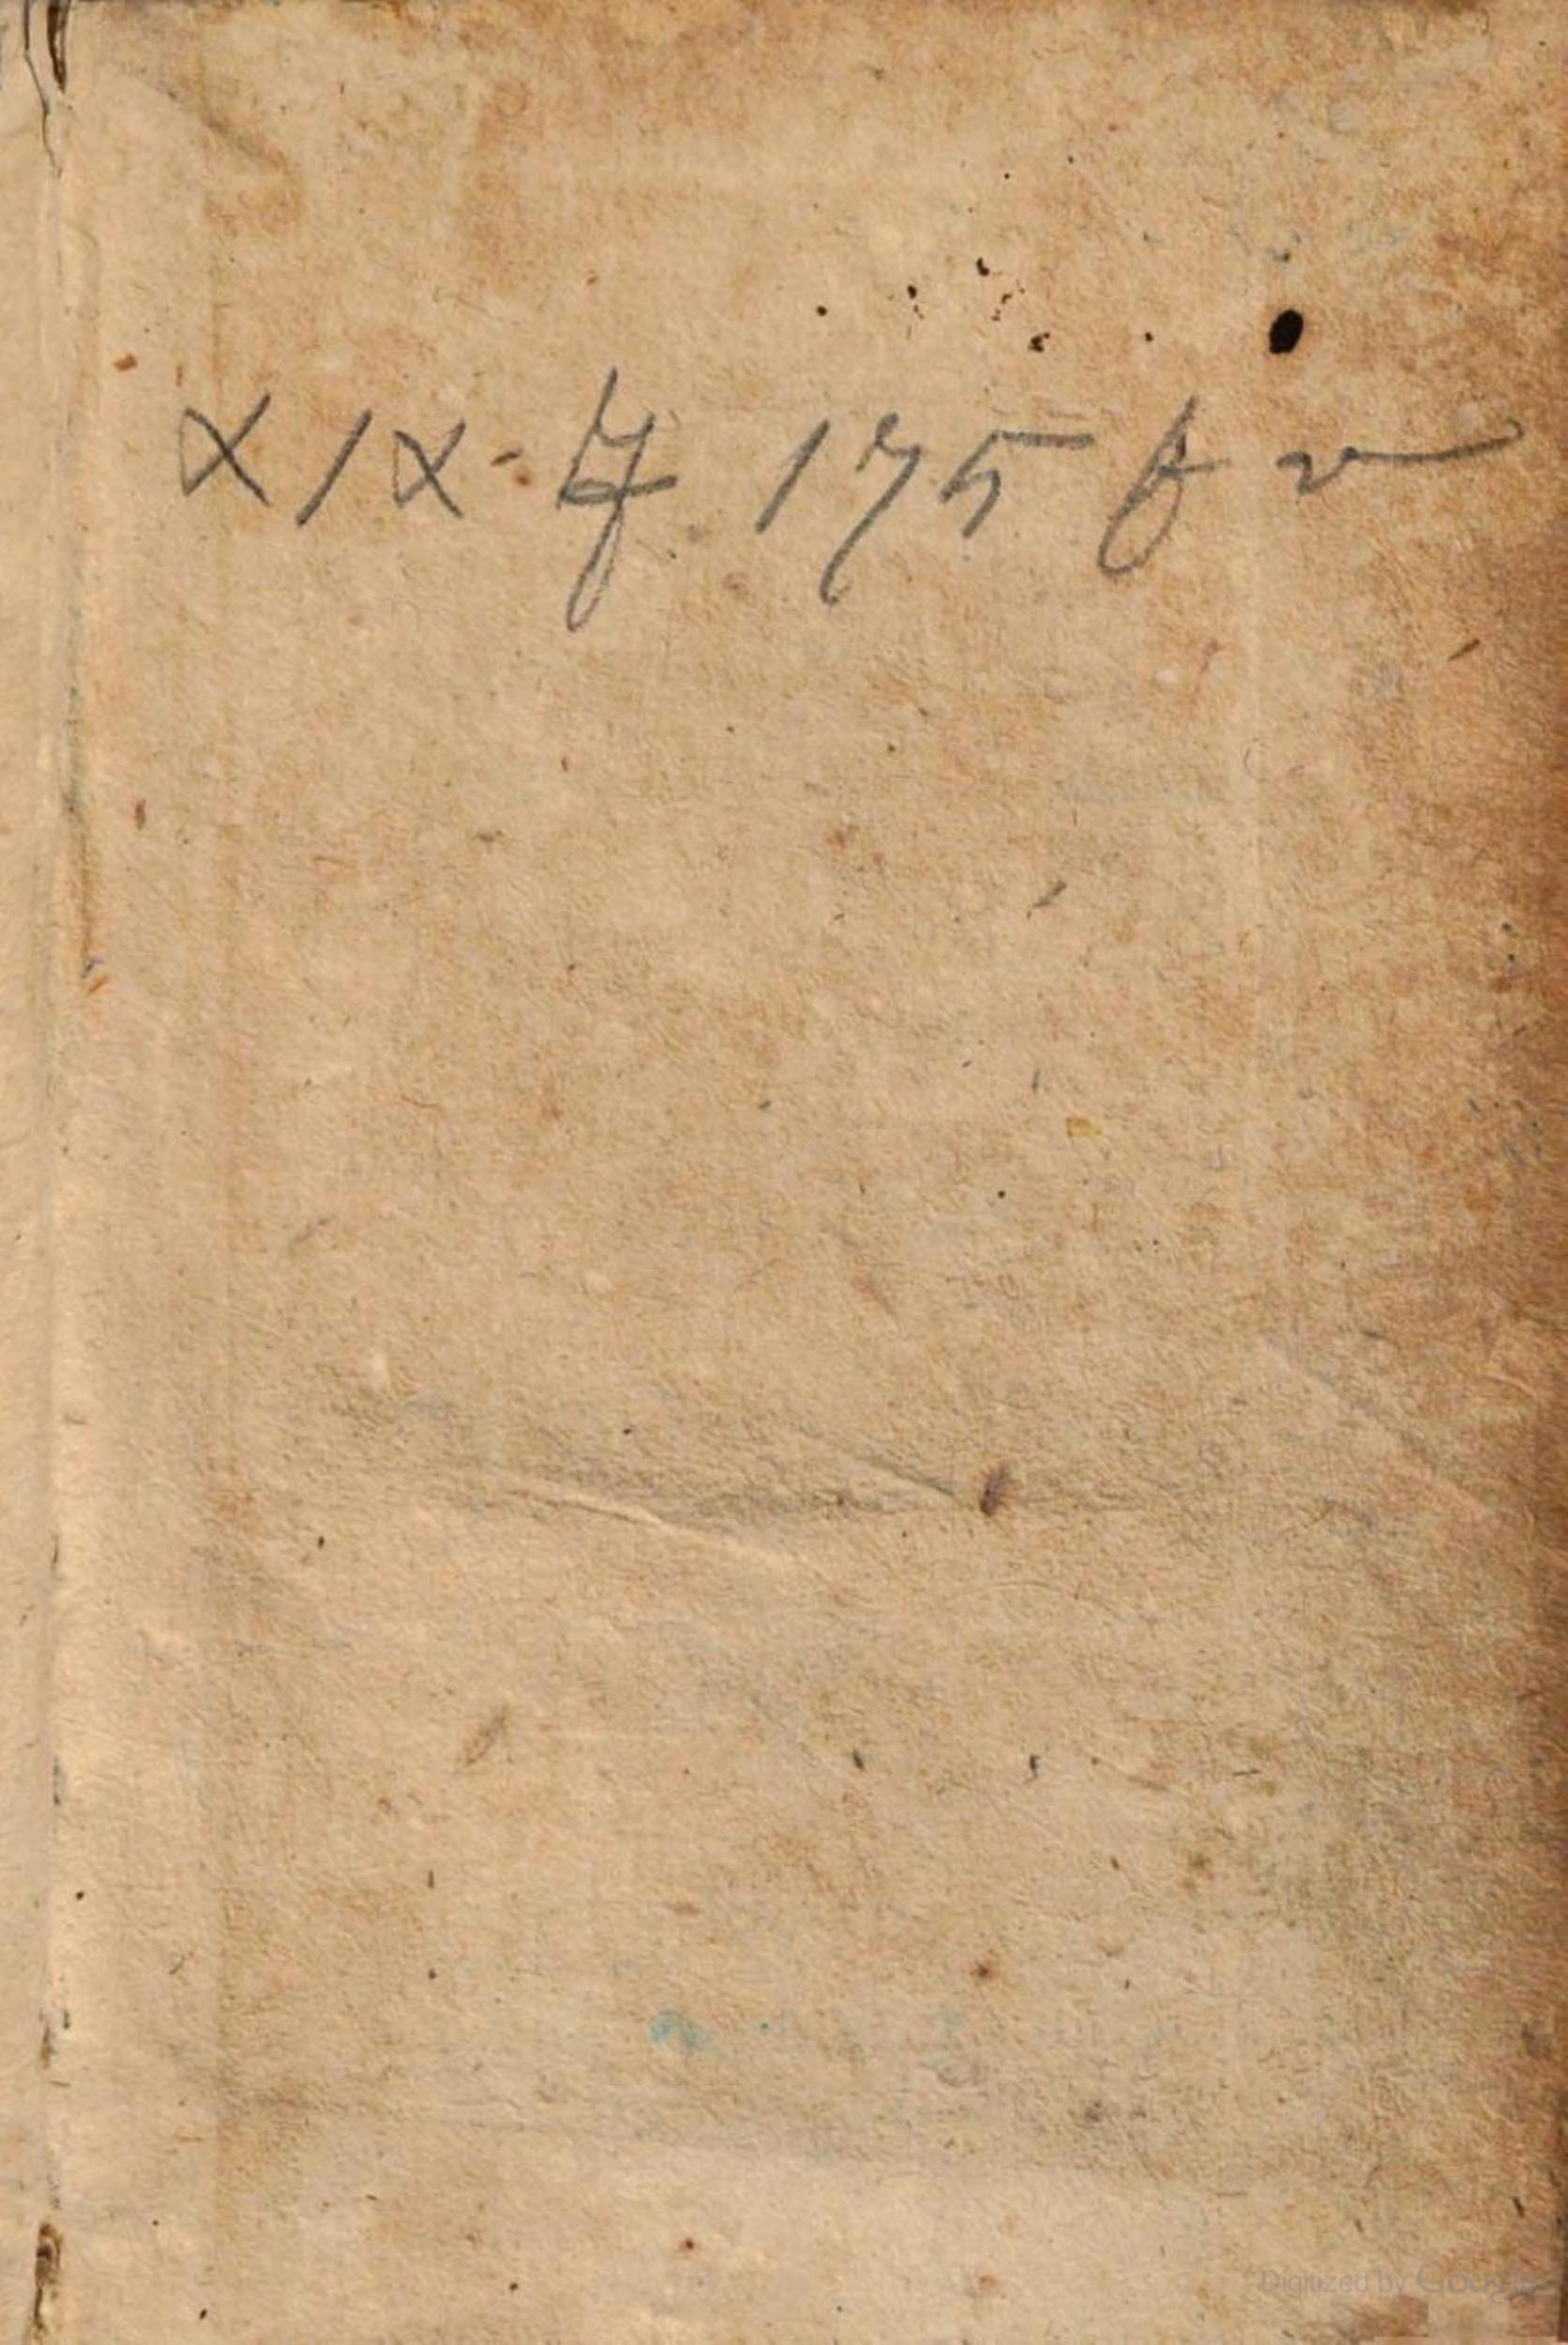 XIX. 7 175 f v
Digitized by Google